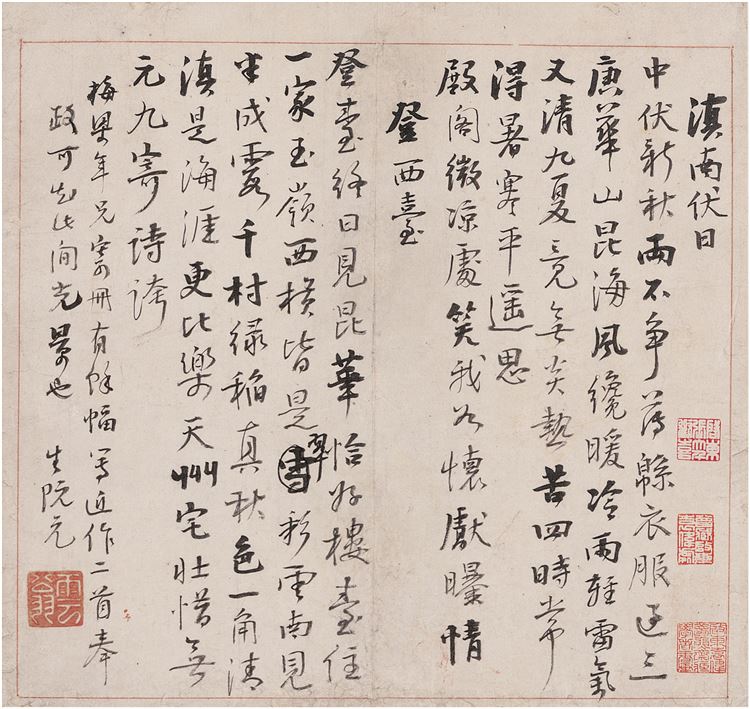 滇南伏日
中伏新秋兩不争薄緜衣服過三
庚華山昆海風纔暖冷雨輕雷氣
又清九夏竟無炎熱苦四時常
得暑寒平遥思
殿閣微涼處笑我如懷獻曝情
登西臺
登臺終日見昆華恰好樓臺住
一家玉嶺西横皆是雪翠彩雲南見
半成霞千村緑稲真秋色一角清
滇是海涯更比樂天州宅壯惜無
元九寄詩誇
梅梁年兄寄冊有餘幅寫近作二首奉
政可知此間光景也 生阮元
雲翁